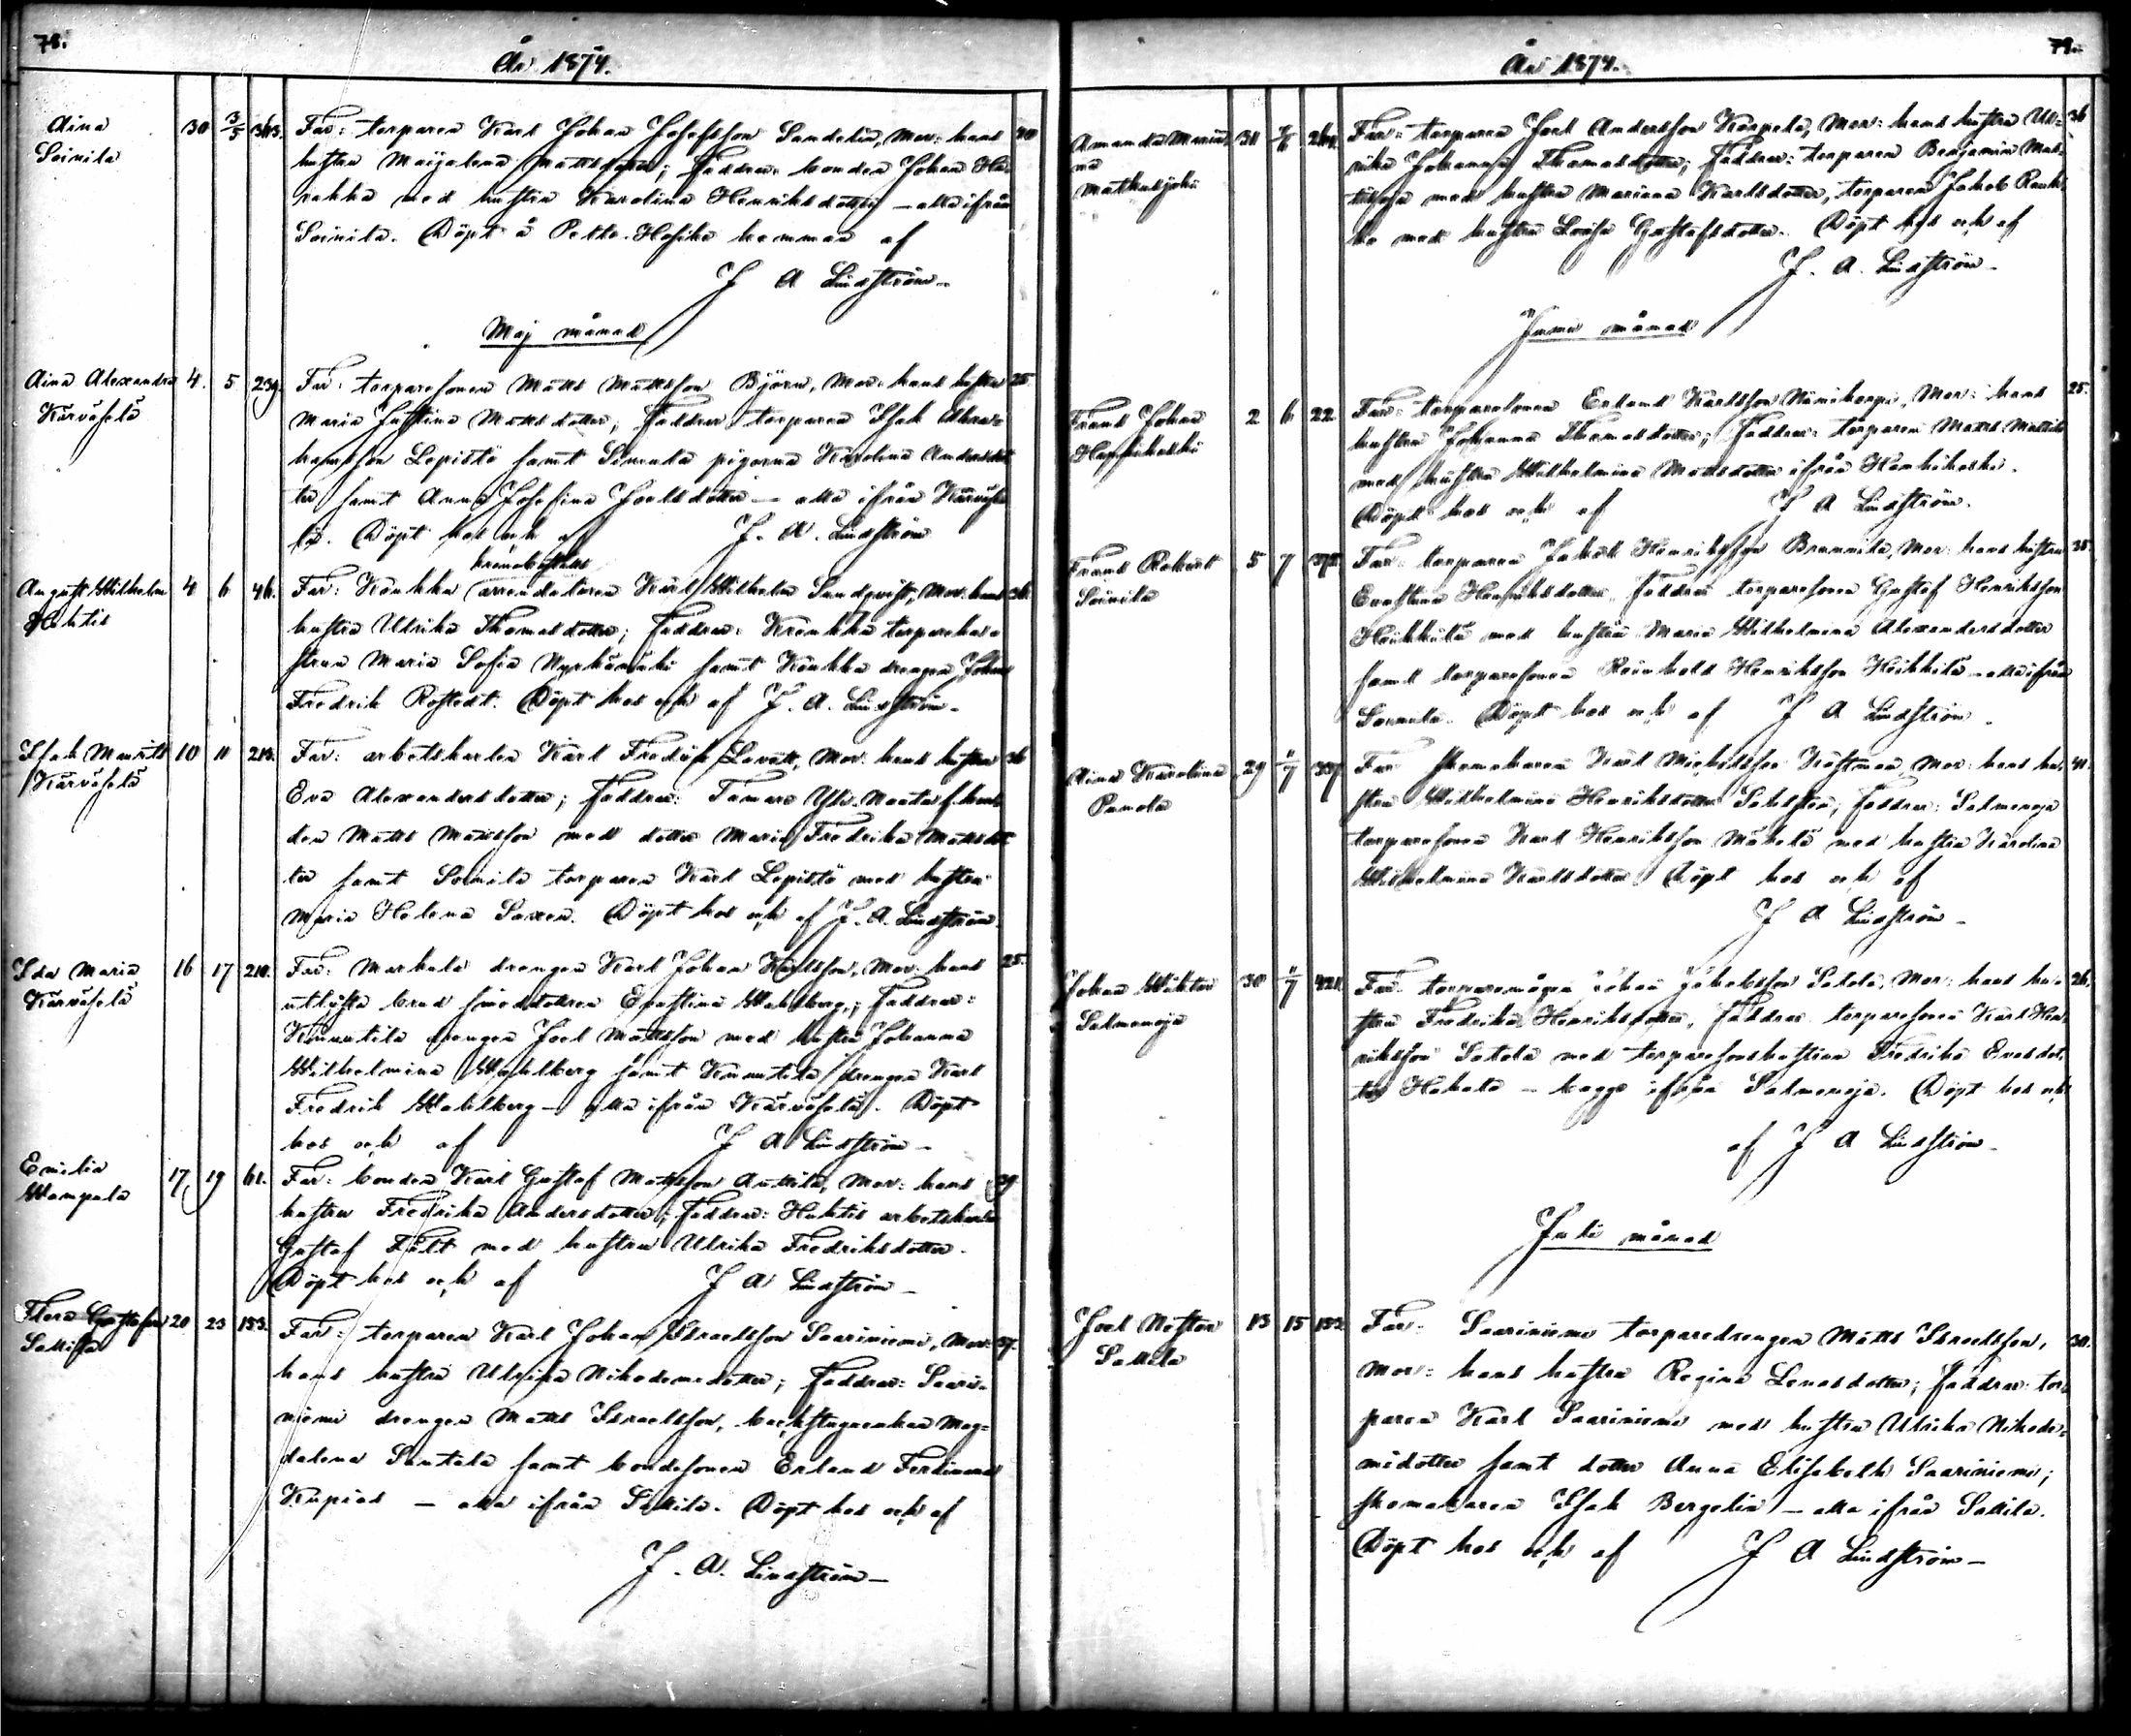 78.
År 1874.
Aina
Soinila
30 3/5 363.
Far: torparen Karl Johan Josefsson Sandelin, Mor: hans 40
hustru Majalena Mattsdotter; Faddrar: bonden Johan
med hustru Karolina Henriksdotter — alla ifrån
Soinila. Döpt å hemman af
J A Lindström
Maj månad
Aina Alexandra 4. 5 239.
Karväselä
Far: torparesonen Matts Mattsson Björn, Mor: hans hustru 25.
Maria Justina Mattsdotter; Faddrar: torparen Isak Abra=
hamsson Lepistö samt pigorna Karolina Andersdot
ter samt Anna Josefina Joelsdotter — alla ifrån Karväse
lä. Döpt hos och af J. A. Lindström
August Wilhelm 4 6 46.
Huhtis
Far: Koukka arrendatoren Karl Wilhelm Sundqvist, Mor: hans 36.
hustru Ulrika Thomasdotter; Faddrar:
Maria Sofia samt Koukka drengen Johan
Fredrik Rostedt. Döpt hos och af J. A. Lindström
Isak Maurits 10 11 213.
Karväselä
Far: arbetskarlen Karl Fredrik Mor: hans hustru 36
Eva Alexandersdotter; Faddrar:
den Matts Mattsson med dotter Maria Fredrika Mattsdot
ter samt Soinila torparen Karl Lepistö med hustru
Maria Helena Saxen. Döpt hos och af J. A. Lindström
Ida Maria 16 17 210.
Karväselä
Far: Markula drengen Karl Johan Karlsson, Mor: hans 25.
utlysta brud Evastina Wahlberg; Faddrar:
Knuutila drengen Joel Mattsson med hustru Johanna
Wilhelmina Wahlberg samt Knuutila drengen Karl
Fredrik Wahlberg — alla ifrån Karväselä. Döpt
hos och af J A Lindström
Emilia
Wampula
17 19 61.
Far: bonden Karl Gustaf Mattsson Anttila, Mor: hans 39
hustru Fredrika Andersdotter; Faddrar: Huhtis arbetskarlen
Gustaf Fält med hustru Ulrika Fredriksdotter.
Döpt hos och af J A Lindström
Flora Gustafva 20 23 153.
Sallila
Far: torparen Karl Johan Israelsson Saariniemi, Mor: 37.
hans hustru Ulrika Nikodemidotter; Faddrar: Saari=
niemi drengen Matts Israelsson, backstuguenkan Mag=
dalena Santala samt bondesonen Erland Ferdinand
Kupias — alla ifrån Sallila. Döpt hos och af
J. A. Lindström
79.
År 1874.
Amanda Maria
na
Matkusjoki
31
Far: torparen Joel Andersson Karpela, Mor: hans hustru Ul= 36
rika Johanna Thomasdotter; Faddrar: torparen Benjamin Mat=
tilsson med hustru Mariana Karlsdotter, torparen Jakob
med hustru Lovisa Gustafsdotter. Döpt hos och af
J. A. Lindström
Juni månad
Frans Johan 2 6 22
Hanhikoski
Far: torparesonen Erland Karlsson Mor: hans 25.
hustru Johanna Thomasdotter; Faddrar: torparen Matts Mattila
med hustru Wilhelmina Mattsdotter ifrån Hanhikoski.
Döpt hos och af J A Lindström.
Frans Robert 5 7
Soinila
Far: torparen Jakob Henriksson Mor: hans hustru 35.
Evastina Henriksdotter; Faddrar torparesonen Gustaf Henriksson
Heikkilä med hustru Maria Wilhelmina Alexandersdotter
samt torparesonen Reinhold Henriksson Heikkilä — alla ifrån
Soinila. Döpt hos och af J A Lindström
Aina Karolina 29
Punola
Far skomakaren Karl Michelsson Mor: hans hu=
stru Wilhelmina Henriksdotter Faddrar: Salmenoja
torparesonen Karl Henriksson Mäkelä med hustru Karolina
Wilhelmina Karlsdotter Döpt hos och af
J A Lindström
Johan Wiktor 30
Salmenoja
Far: torparemågen Johan Jakobsson Mor: hans hu= 26.
stru Fredrika Henriksdotter, Faddrar torparesonen Karl Hen=
riksson med torparesonshustrun Fredrika Enosdot=
ter Hakala — bägge ifrån Salmenoja. Döpt hos och
af J A Lindström
Juli månad
Joel Nestor 13 15 153.
Sallila
Far: Saariniemi torparedrengen Matts Israelsson, 30.
Mor: hans hustru Regina Enosdotter; Faddrar: tor=
paren Karl Saariniemi med hustru Ulrika Nikode=
midotter samt dotter Anna Elisabeth Saariniemi;
skomakaren Isak Bergelin — alla ifrån Sallila.
Döpt hos och af J A Lindström